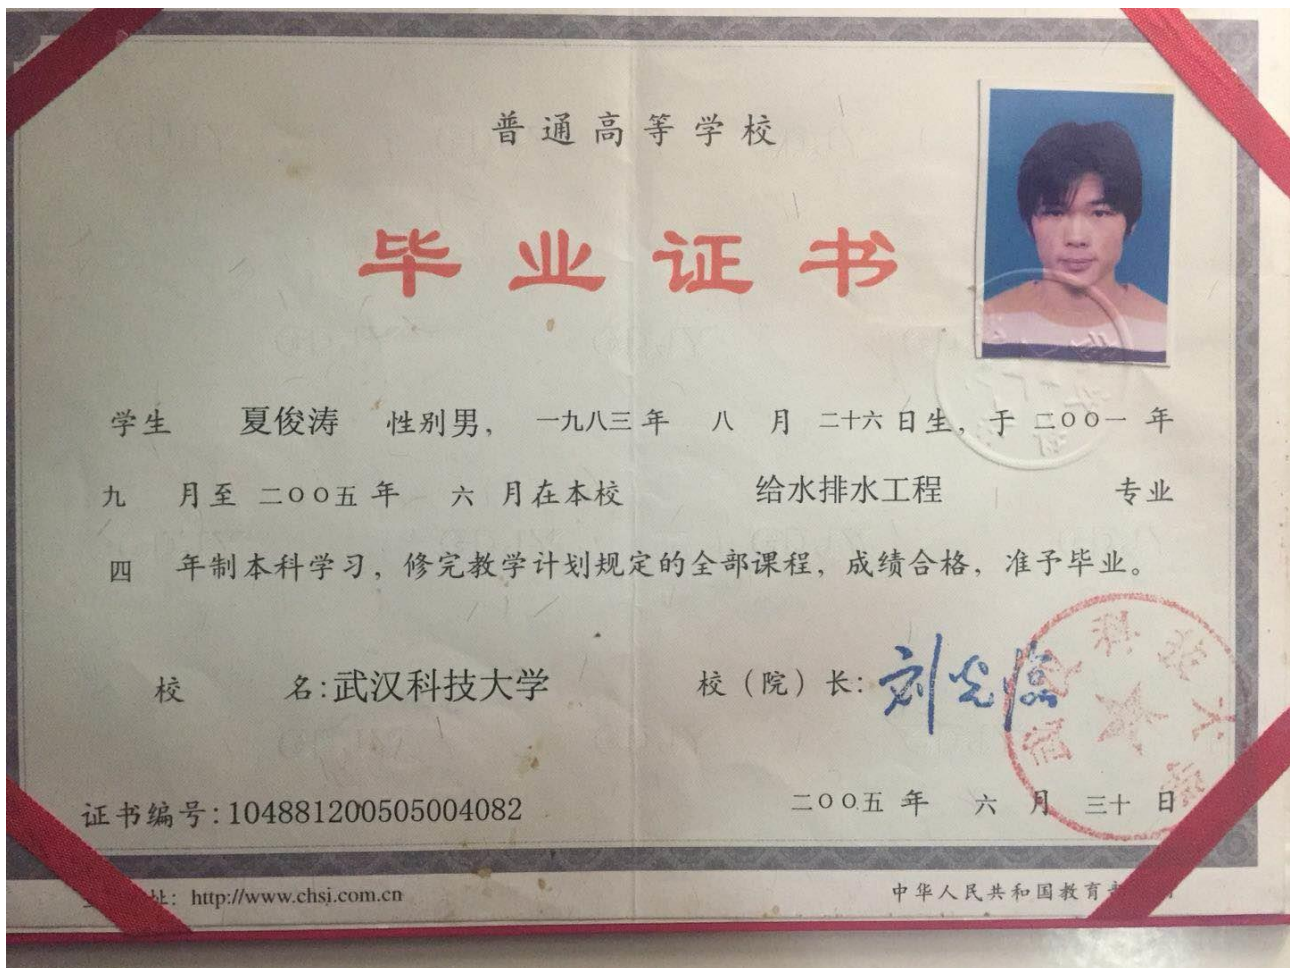 普通高等学校
毕业证书
学生 夏俊涛 性别男，一九八三年 八 月 二十六日生，于二〇〇一年
九 月至二〇〇五年 六 月在本校 给水排水工程 专业
四 年制本科学习，修完教学计划规定的全部课程，成绩合格，准予毕业。
校 名：武汉科技大学 校（院）长：刘光临
武汉科技大学
证书编号：104881200505004082 二〇〇五年 六 月 三十 日
址：http://www.chsi.com.cn 中华人民共和国教育